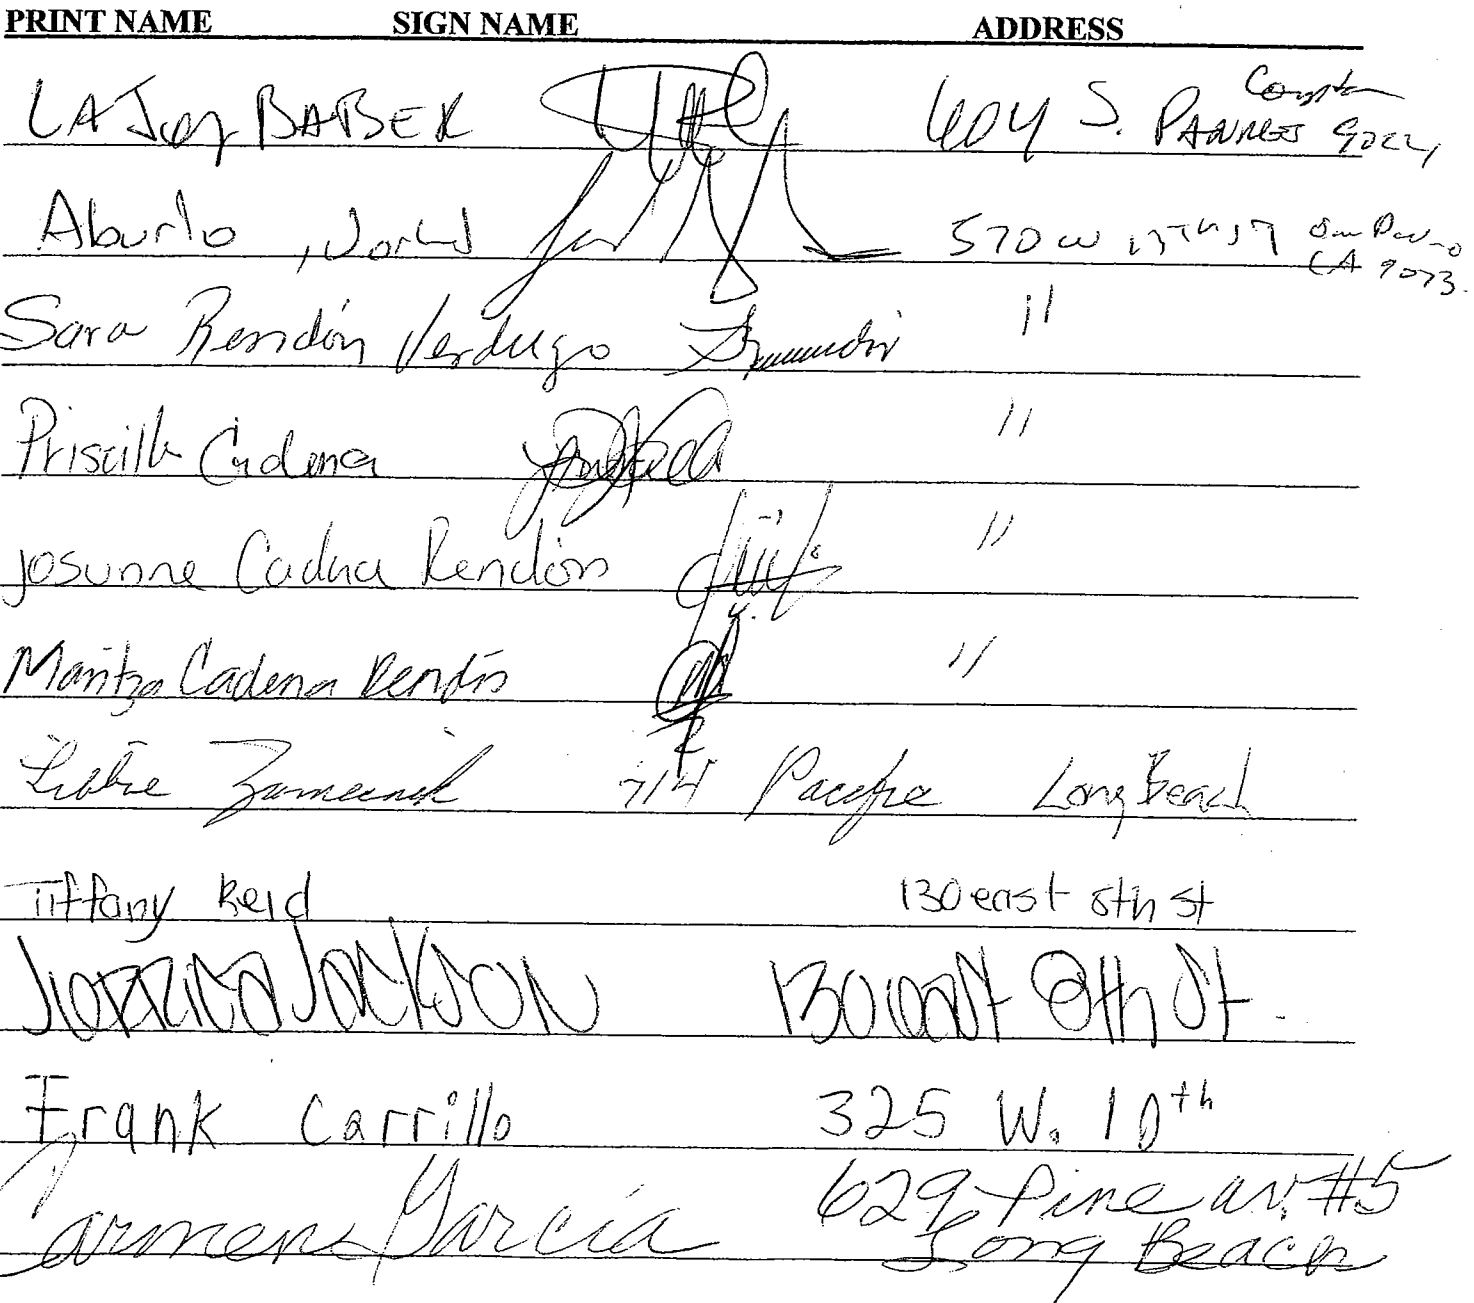 PRINT NAME SIGN NAME ADDRESS
LAJoy BABER 604 S. Compton 
Aburto, 570 W 17th San Pedro
CA 9073
Sara Rendón Verdugo "
Priscilla Cadena "
Josunne Cadena Rendón "
Maritza Cadena Rendón "
Libbie Zamecnik 714 Pacific Long Beach
Tiffany Reid 130 east 8th st
Jackson 130 east 8th St.
Frank Carrillo 325 W. 10th
Carmen Garcia 629 Pine av. #5
Long Beach